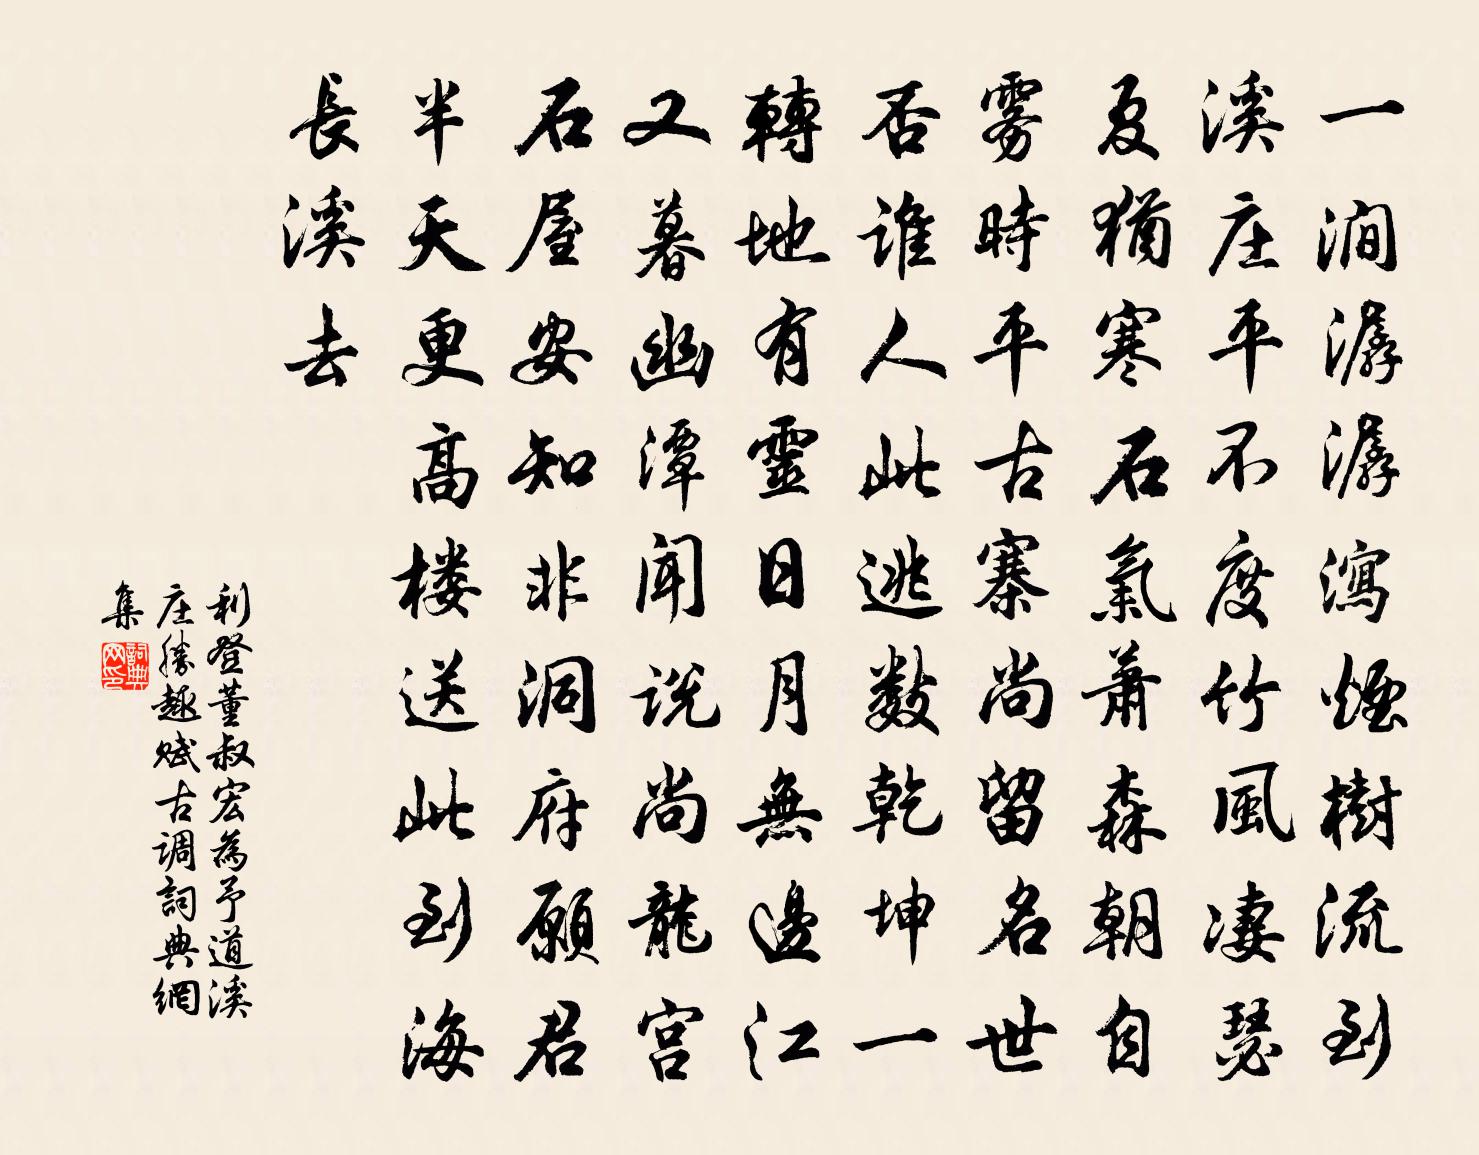 一澗潺潺瀉煙樹流到
溪庄平不度竹風凄瑟
夏猶寒石氣蕭森朝自
雾時平古寨尚留名世
否誰人此逃數乾坤一
轉地有靈日月無邊江
又暮幽潭聞说尚龍宫
石屋安知非洞府願君
半天更高楼送此到海
長溪去
利登董叔宏為予道溪
庄勝趣賦古調詞典網
集
詞典网印